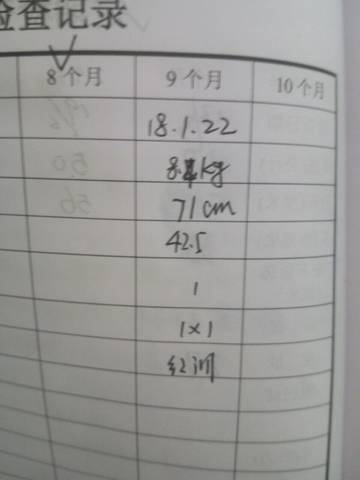 检查记录
8个月 9个月 10个月
18.1.22
kg
71cm
42.5
1
1×1
红润